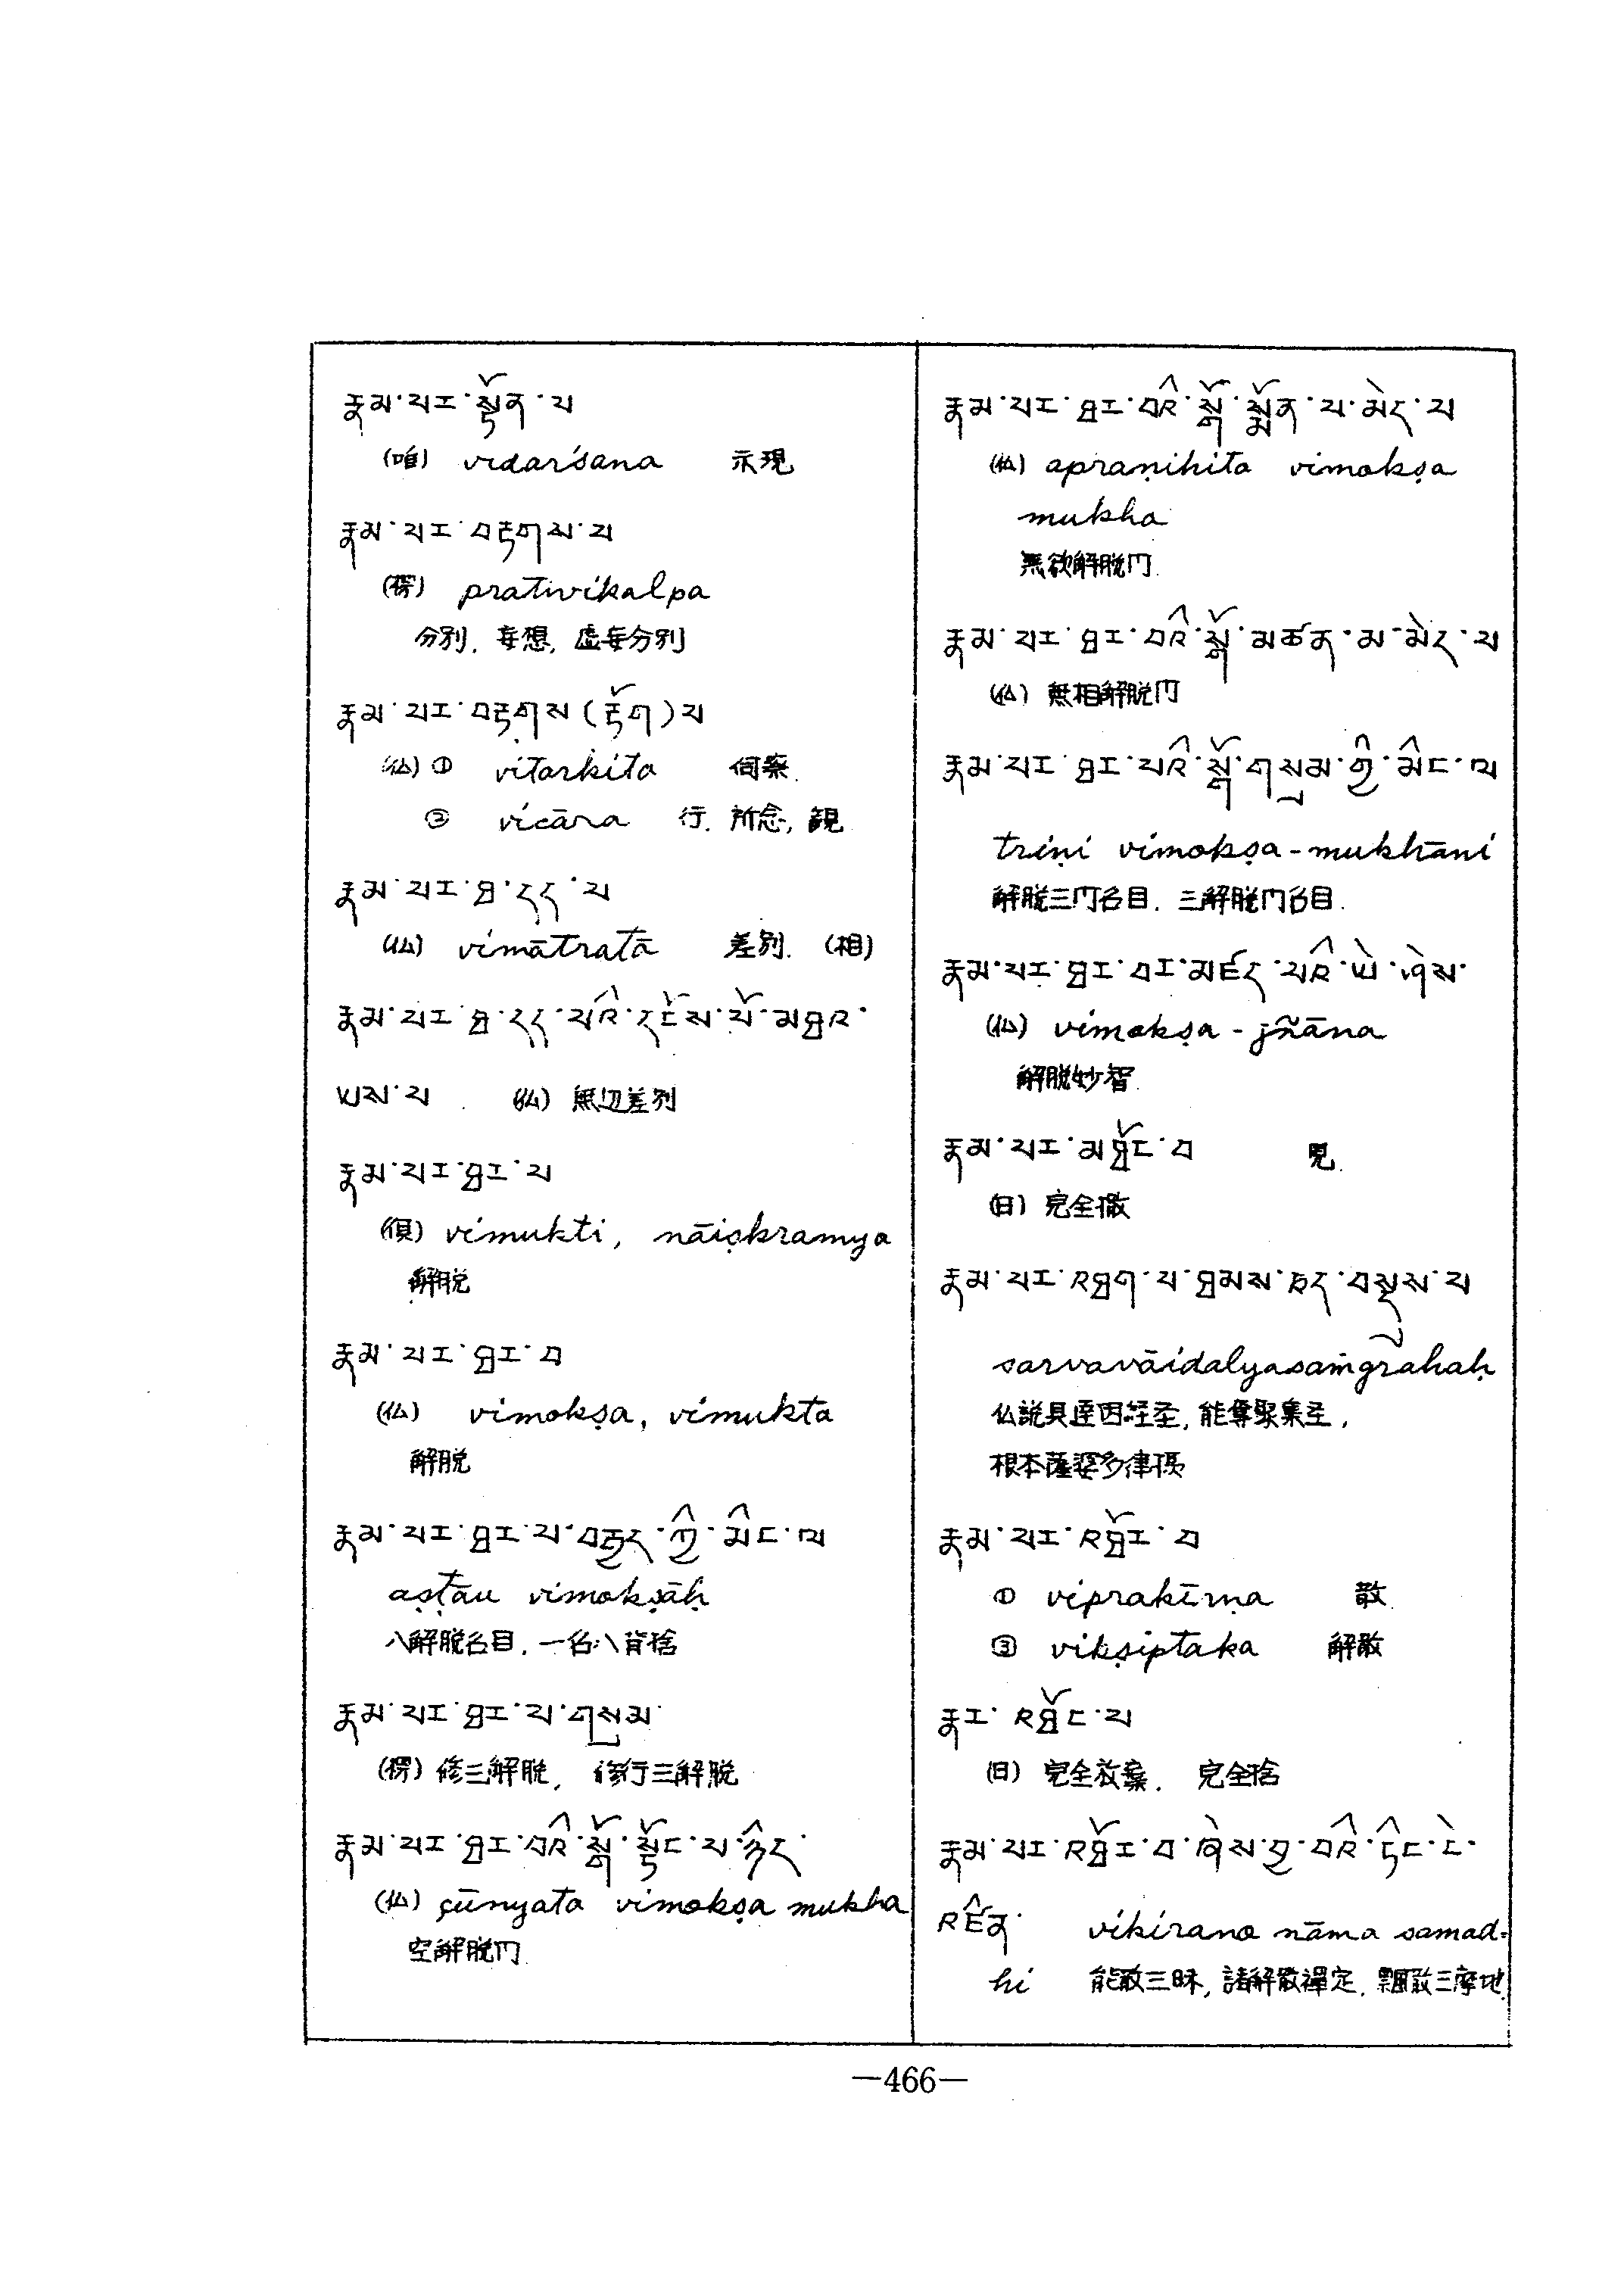 རྣམ་པར་སྟོན་པ
(唯) vidarśana 示現
རྣམ་པར་བརྟགས་པ
(楞) prativikalpa
分別. 妄想, 虚妄分別
རྣམ་པར་བརྟགས(རྟོག)པ
(仏) ① vitarkita 伺察.
② vicāra 行. 所念, 観
རྣམ་པར་ཐ་དད་པ
(仏) vimātratā 差別. (相)
རྣམ་པར་ཐ་དད་པའི་དངོས་པོ་མཐའ་
ཡས་པ (仏) 無辺差別
རྣམ་པར་ཐར་པ
(倶) vimukti, nāiṣkramya
解脱
རྣམ་པར་ཐར་བ
(仏) vimokṣa, vimukta
解脱
རྣམ་པར་ཐར་པ་བརྒྱད་ཀྱི་མིང་ལ
aṣṭāu vimokṣāḥ
八解脱名目. 一名八背捨
རྣམ་པར་ཐར་པ་གསུམ་
(楞) 修三解脱, 修行三解脱
རྣམ་པར་ཐར་བའི་སྒོ་སྟོང་པ་ཉིད་
(仏) çūnyata vimokṣa mukha
空解脱門
རྣམ་པར་ཐར་བའི་སྒོ་སྨོན་པ་མེད་པ
(仏) apraṇihita vimokṣa
mukha
無欲解脱門.
རྣམ་པར་ཐར་བའི་སྒོ་མཚན་མ་མེད་པ
(仏) 無相解脱門
རྣམ་པར་ཐར་པའི་སྒོ་གསུམ་གྱི་མིང་ལ
triṇi vimokṣa-mukhāni
解脱三門名目. 三解脱門名目.
རྣམ་པར་ཐར་བར་མཛད་པའི་ཡེ་ཤེས་
(仏) vimokṣa - jñāna
解脱妙智.
རྣམ་པར་མཐོང་བ 見.
(日) 完全撒
རྣམ་པར་འཐག་པ་ཐམས་ཅད་བསྡུས་པ
sarvavāidalyasaṁgrahaḥ
根本薩婆多律摂
རྣམ་པར་འཐོར་བ
① viprakīrṇa 散.
② vikṣiptaka 解散
རྣར་འཐོང་པ
(日) 完全放棄. 完全捨
རྣམ་པར་འཐོར་བ་ཞེས་བྱ་བའི་ཏིང་ངེ་
འཛིན་ vikirano nāma samad-
hi 能散三昧, 諸解散禅定. 飄散三摩地.
—466—